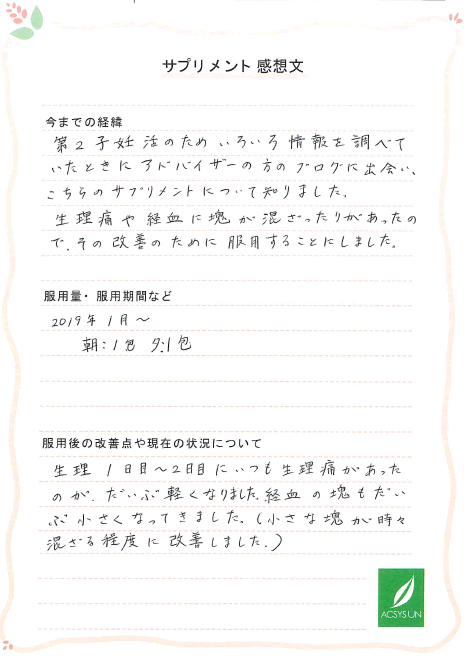 サプリメント 感想文
今までの経緯
第2子妊活のため いろいろ 情報を調べて
いたときに アドバイザーの方のブログに出会い、
こちらのサプリメントについて知りました。
生理痛や経血に塊が混ざったりがあったの
で、その改善のために服用することにしました。
服用量・服用期間など
2019年1月〜
朝:1包 夕:1包
服用後の改善点や現在の状況について
生理1日目〜2日目にいつも生理痛があった
のが、だいぶ軽くなりました。経血の塊もだい
ぶ小さくなってきました。(小さな塊が時々
混ざる程度に改善しました。)
ACSYS UN